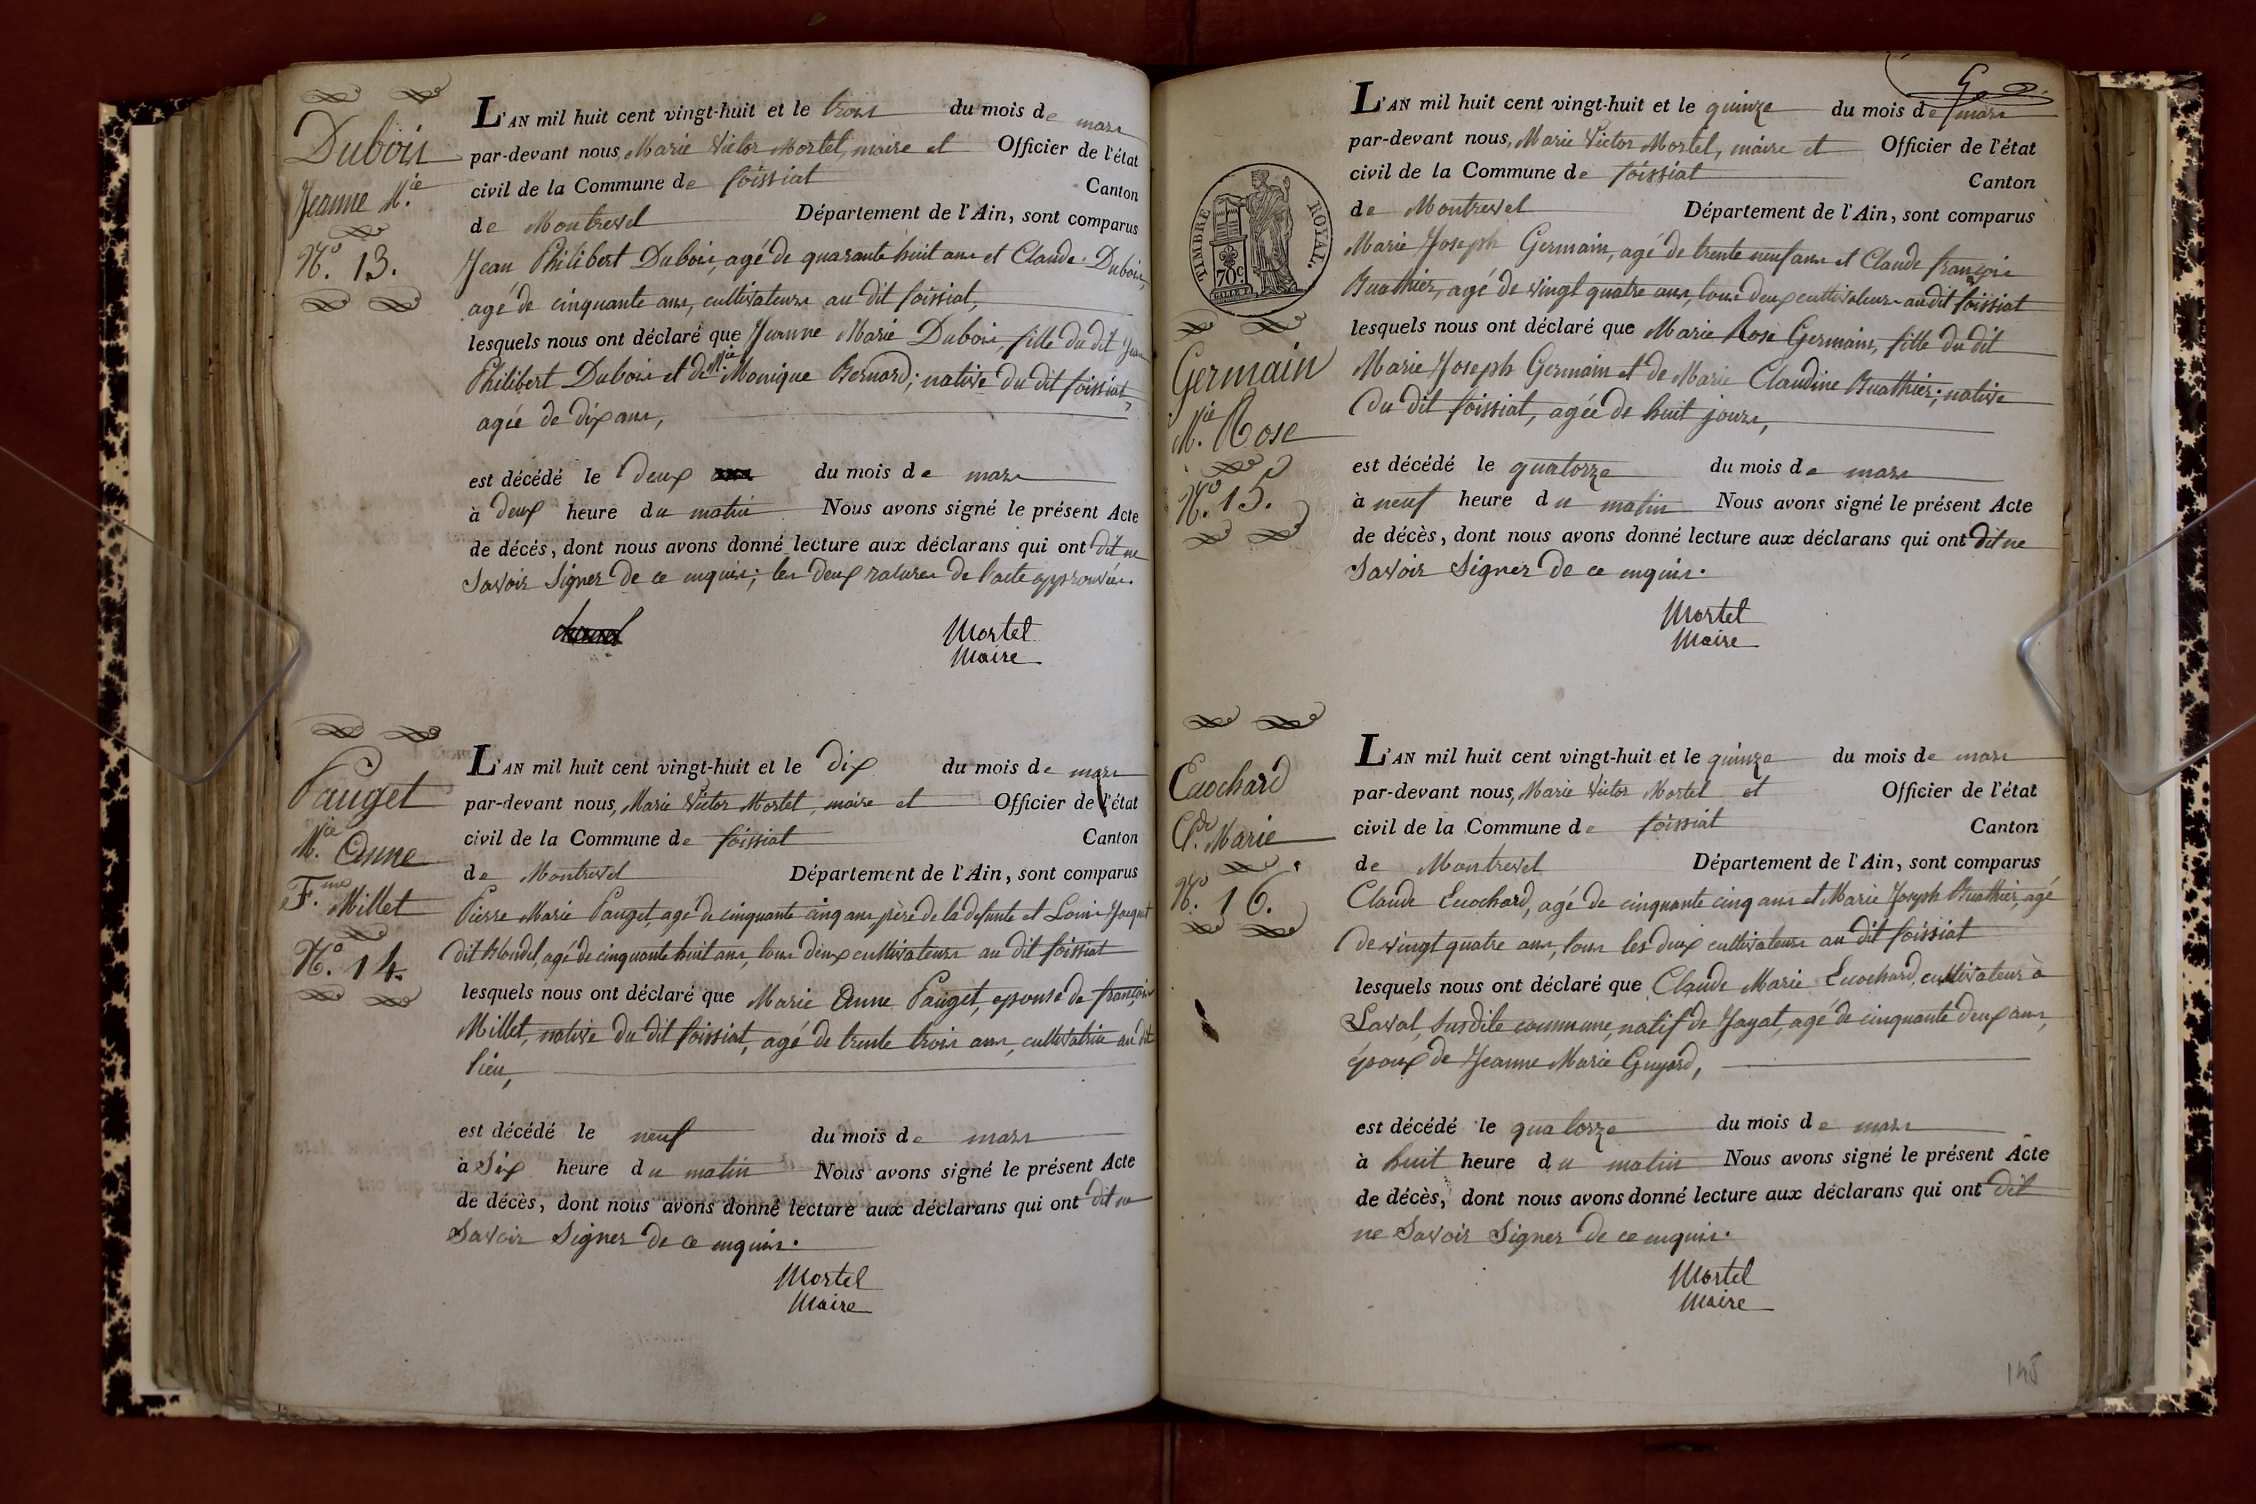 Dubois
Jeanne M.ie
N.o 13.
L'AN mil huit cent vingt-huit et le trois du mois de mars
par-devant nous, Marie Victor Mortel, maire et Officier de l'état
civil de la Commune de foissiat Canton
de Montrevel Département de l'Ain, sont comparus
Jean Philibert Dubois, agé de quarante huit ans et Claude Dubois,
agé de cinquante ans, cultivateurs au dit foissiat,
lesquels nous ont déclaré que Jeanne Marie Dubois, fille du dit Jean
Philibert Dubois et de M.ie Monique Bernard; native du dit foissiat,
agée de dix ans,
est décédé le deux du mois de mars
à deux heure du matin Nous avons signé le présent Acte
de décès, dont nous avons donné lecture aux déclarans qui ont dit ne
Savoir Signer de ce enquis; les deux ratures de l'acte approuvées.
Mortel
Maire
Pauget
M.ie Anne
F.me Millet
N.o 14.
L'AN mil huit cent vingt-huit et le dix du mois de mars
par-devant nous, Marie Victor Mortel, maire et Officier de l'état
civil de la Commune de foissiat Canton
de Montrevel Département de l'Ain, sont comparus
Pierre Marie Pauget, agé de cinquante cinq ans, père de la defunte et Louis Jacquet
dit Blondel, agé de cinquante huit ans, tous deux cultivateurs au dit foissiat
lesquels nous ont déclaré que Marie Anne Pauget, epouse de françois
Millet, native du dit foissiat, agé de trente trois ans, cultivatrice au dit
lieu,
est décédé le neuf du mois de mars
à Six heure du matin Nous avons signé le présent Acte
de décès, dont nous avons donné lecture aux déclarans qui ont dit ne
Savoir Signer de ce enquis.
Mortel
Maire
TIMBRE ROYAL.
70c.
Germain
M.ie Rose
N.o 15.
L'AN mil huit cent vingt-huit et le quinze du mois de mars
par-devant nous, Marie Victor Mortel, maire et Officier de l'état
civil de la Commune de foissiat Canton
de Montrevel Département de l'Ain, sont comparus
Marie Joseph Germain, agé de trente neuf ans et Claude françois
Buathier, agé de vingt quatre ans, tous deux cultivateurs au dit foissiat
lesquels nous ont déclaré que Marie Rose Germain, fille du dit
Marie Joseph Germain et de Marie Claudine Buathier; native
du dit foissiat, agée de huit jours,
est décédé le quatorze du mois de mars
à neuf heure du matin Nous avons signé le présent Acte
de décès, dont nous avons donné lecture aux déclarans qui ont dit ne
Savoir Signer de ce enquis.
Mortel
Maire
Euochard
Cl.de Marie
N.o 16.
L'AN mil huit cent vingt-huit et le quinze du mois de mars
par-devant nous, Marie Victor Mortel et Officier de l'état
civil de la Commune de foissiat Canton
de Montrevel Département de l'Ain, sont comparus
Claude Euochard, agé de cinquante cinq ans et Marie Joseph Buathier, agé
de vingt quatre ans, tous les deux cultivateurs au dit foissiat
lesquels nous ont déclaré que Claude Marie Euochard, cultivateur à
Laval, susdite commune, natif de Jayat, agé de cinquante deux ans,
époux de Jeanne Marie Guyard,
est décédé le quatorze du mois de mars
à huit heure du matin Nous avons signé le présent Acte
de décès, dont nous avons donné lecture aux déclarans qui ont dit
ne Savoir Signer de ce enquis.
Mortel
Maire
148